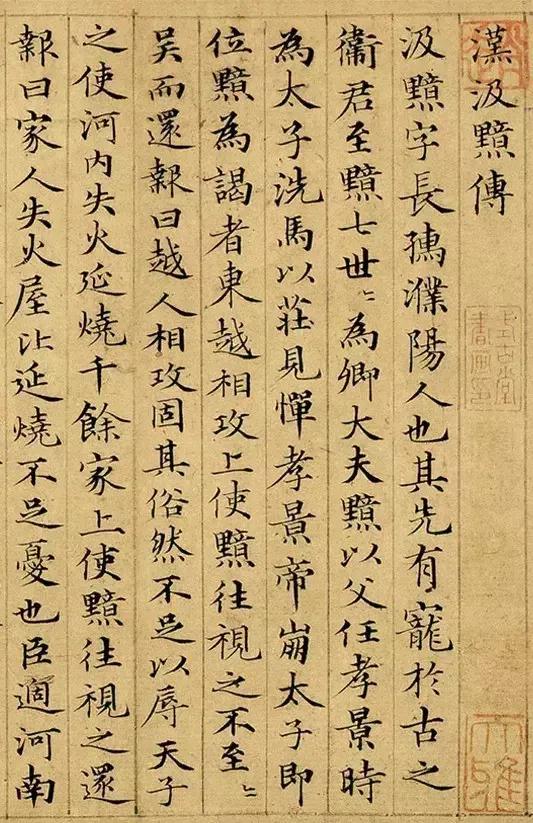 漢汲黯傳
汲黯字長孺濮陽人也其先有寵於古之
衛君至黯七世〻為卿大夫黯以父任孝景時
為太子洗馬以莊見憚孝景帝崩太子即
位黯為謁者東越相攻上使黯往視之不至〻
吳而還報曰越人相攻固其俗然不足以辱天子
之使河內失火延燒千餘家上使黯往視之還
報曰家人失火屋比延燒不足憂也臣適河南